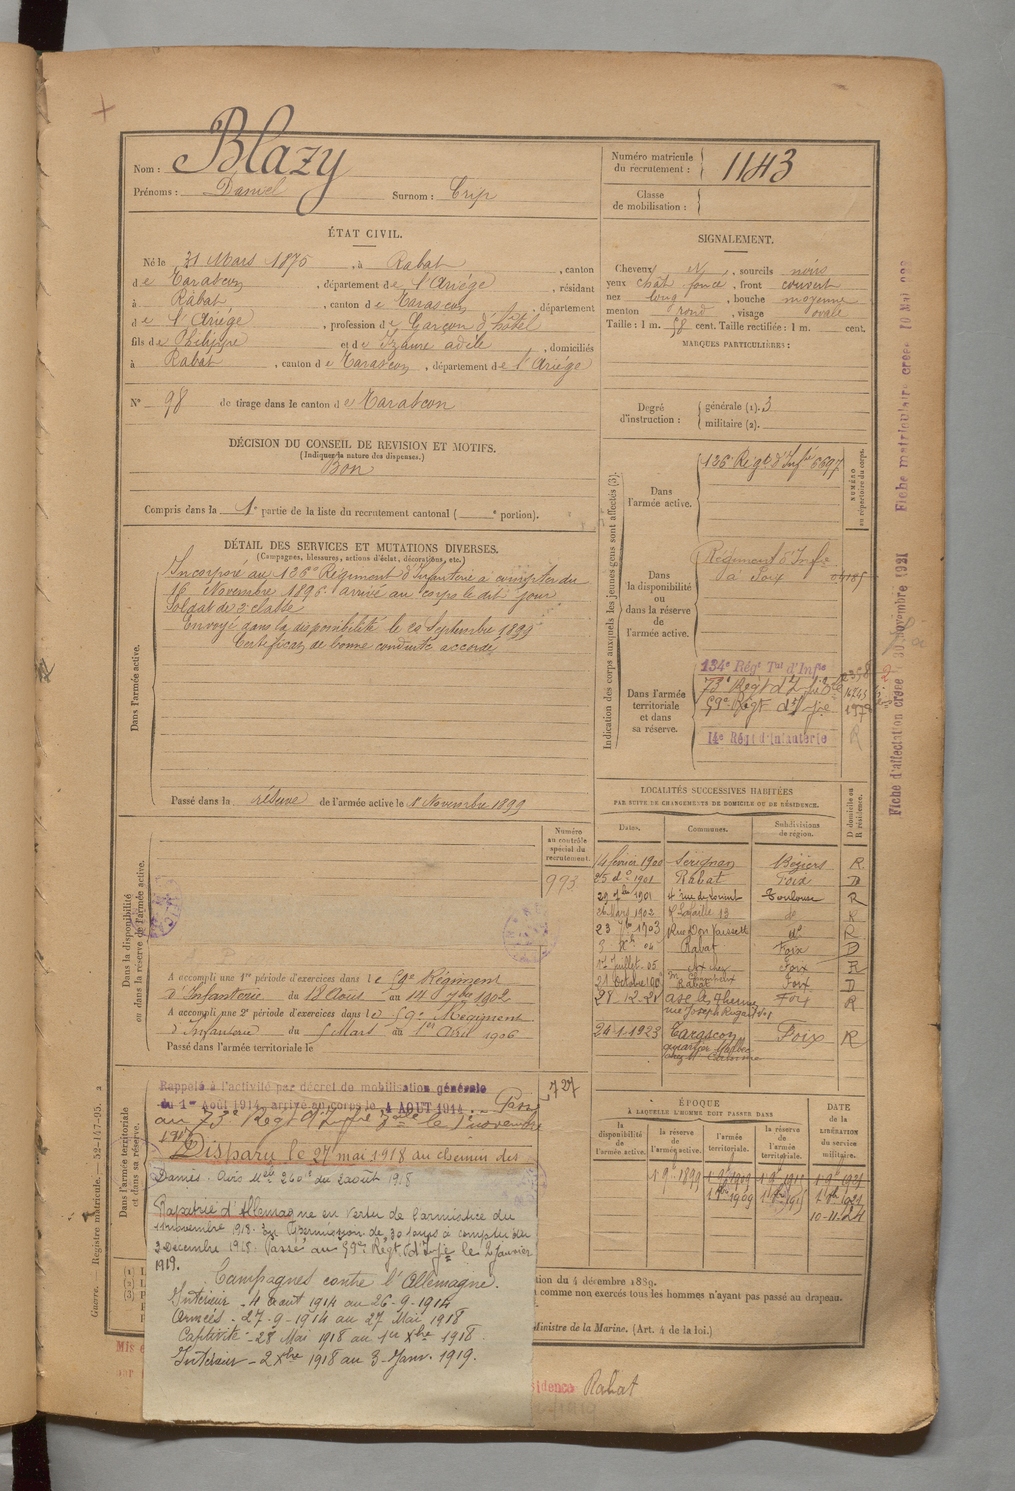 Nom : Blazy
Prénoms : Daniel Surnom : Crip
Numéro matricule
du recrutement : 1143
Classe
de mobilisation :
ÉTAT CIVIL.
Né le 31 Mars 1875, à Rabat, canton
de Tarascon, département de l'Ariége, résidant
à Rabat, canton de Tarascon, département
de l'Ariége, profession de Garçon d'hôtel
fils de Philippe et de Izaure adèle, domiciliés
à Rabat, canton de Tarascon, département de l'Ariége
N° 98 de tirage dans le canton de Tarascon
SIGNALEMENT.
Cheveux N, sourcils noirs
yeux chat. foncé, front couvert
nez long, bouche moyenne
menton rond, visage ovale
Taille : 1 m. 58 cent. Taille rectifiée : 1 m. cent.
MARQUES PARTICULIÈRES :
Degré
d'instruction :
générale (1). 3
militaire (2).
DÉCISION DU CONSEIL DE REVISION ET MOTIFS.
(Indiquer la nature des dispenses.)
Bon
Compris dans la 1e partie de la liste du recrutement cantonal ( e portion).
DÉTAIL DES SERVICES ET MUTATIONS DIVERSES.
(Campagnes, blessures, actions d'éclat, décorations, etc.)
Dans l'armée active.
Incorporé au 126e Régiment d'Infanterie à compter du
16 Novembre 1896 arrivé au corps le dit jour
Soldat de 2e classe
Envoyé dans la disponibilité le 20 Septembre 1899
Certificat de bonne conduite accordé
Passé dans la réserve de l'armée active le 1 Novembre 1899
Indication des corps auxquels les jeunes gens sont affectés (3).
NUMÉRO
au répertoire du corps.
Dans
l'armée active.
126e Régt d'Infie 6697
Dans
la disponibilité
ou
dans la réserve
de
l'armée active.
Régiment d'Infie
à Foix
Dans l'armée
territoriale
et dans
sa réserve.
134e Rég Tal d'Infie
73e Régt d'Infie
59e Régt d'Infie
14e Régt d'Infanterie
Fiche d'affectation créée le 30 novembre 1921
Fiche matriculaire créée 10 Mai
LOCALITÉS SUCCESSIVES HABITÉES
PAR SUITE DE CHANGEMENTS DE DOMICILE OU DE RÉSIDENCE.
D domicile ou
R résidence.
Dates. Communes. Subdivisions
de région.
4 février 1900 Sérignan Béziers R
25 do 1901 Rabat Foix D
29 1901 Toulouse R
26 Mars 1902 R
23 1903 R
Rabat Foix D
Juillet 05 Foix R
Rabat Foix D
28-12-21 Foix R
24-1-1923 Tarascon Foix R
Dans la disponibilité
ou dans la réserve de l'armée active.
Numéro
au contrôle
spécial du
recrutement.
993
A accompli une 1re période d'exercices dans le 59e Régiment
d'Infanterie du 18 Aout au 14 7bre 1902
A accompli une 2e période d'exercices dans le 59e Régiment
d'Infanterie du 5 Mars au 1er Avril 1906
Passé dans l'armée territoriale le
Dans l'armée territoriale
et dans sa réserve.
Rappelé à l'activité par décret de mobilisation générale
du 1er Août 1914, arrivé au corps le 4 AOUT 1914
au 73e Régt d'Infie le 1er novembre
1917
727
Disparu le 27 mai 1918 au chemin des
Dames. Avis Mel 260 du 2 août 1918
Rapatrié d'Allemagne en vertu de l'armistice du
11 novembre 1918. En Permission de 30 jours à compter du
3 Décembre 1918. Passé au 59e Régt d'Infie le 2 janvier
1919.
Campagnes contre l'Allemagne.
Intérieur - 4 août 1914 au 26-9-1914
Armées - 27-9-1914 au 27 Mai 1918
Captivité - 28 Mai 1918 au 1er Xbre 1918
Intérieur - 2 Xbre 1918 au 3 Janv. 1919.
ÉPOQUE
À LAQUELLE L'HOMME DOIT PASSER DANS
DATE
DE LA
LIBÉRATION
du service
militaire.
la
disponibilité
de l'armée active.
la réserve
de
l'armée active.
l'armée
territoriale.
la réserve
de l'armée
territoriale.
10-11-24
tion du 4 décembre 1889.
comme non exercés tous les hommes n'ayant pas passé au drapeau.
Ministre de la Marine. (Art. 4 de la loi.)
sidence Rabat
Guerre. — Registre matricule. — 52-147-95.